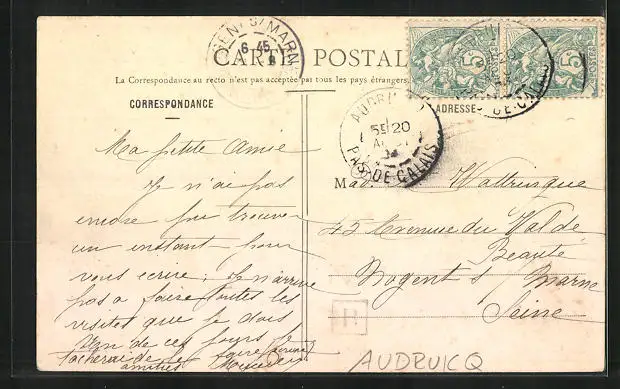 NOGENT S/ MARNE
6-45
CARTE POSTALE
La Correspondance au recto n'est pas acceptée par tous les pays étrangers.
CORRESPONDANCE
ADRESSE
5
5
POSTES
AUDRUICQ
5E 20
PAS-DE-CALAIS
PAS-DE-CALAIS
Ma petite Amie
Je n'ai pas
encore pu trouver
un instant pour
vous écrire; je n'arrive
pas a faire toutes les
visites que je dois
Un de ces jours je
tacherai de le faire
amitiés
Mad. Wattrinque
45 Avenue du Val de
Beauté
Nogent s/ Marne
Seine
AUDRUICQ